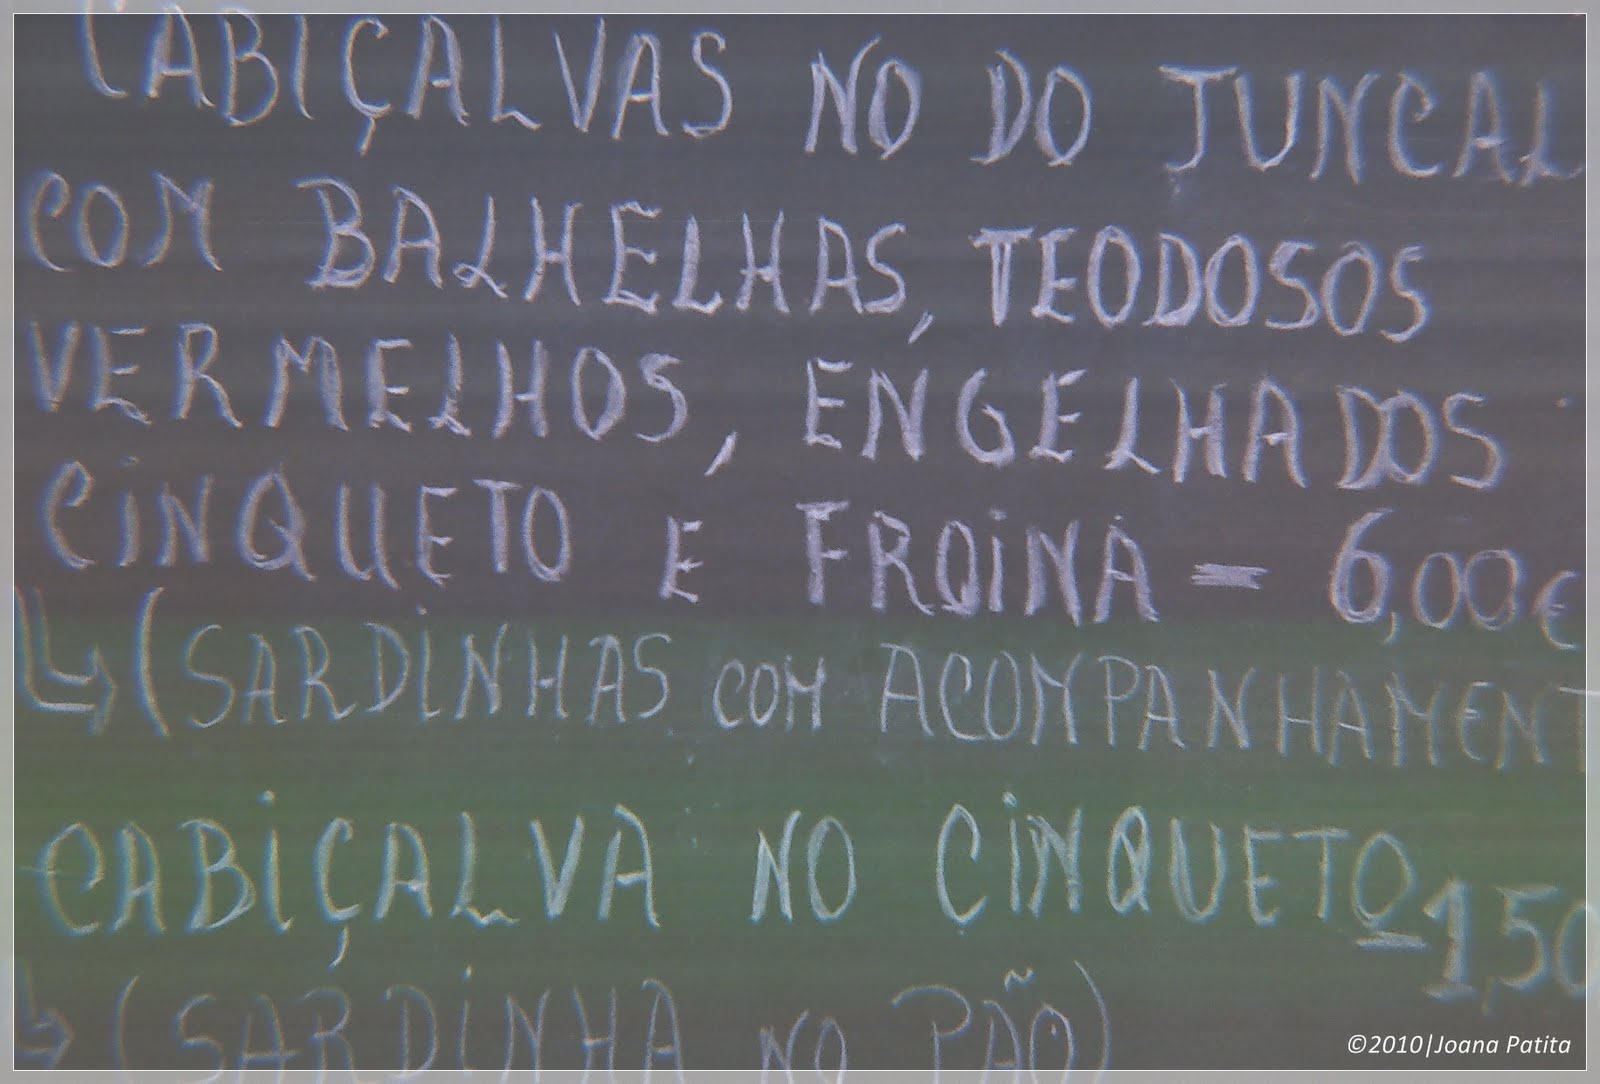 CABIÇALVAS NO DO JUNCAL
COM BALHELHAS, TEODOSOS
VERMELHOS, ENGELHADOS
CINQUETO E FROINA - 6,00€
(SARDINHAS COM ACOMPANHAMENT
CABIÇALVA NO CINQUETO 1,50
(SARDINHA NO PÃO)
©2010|Joana Patita